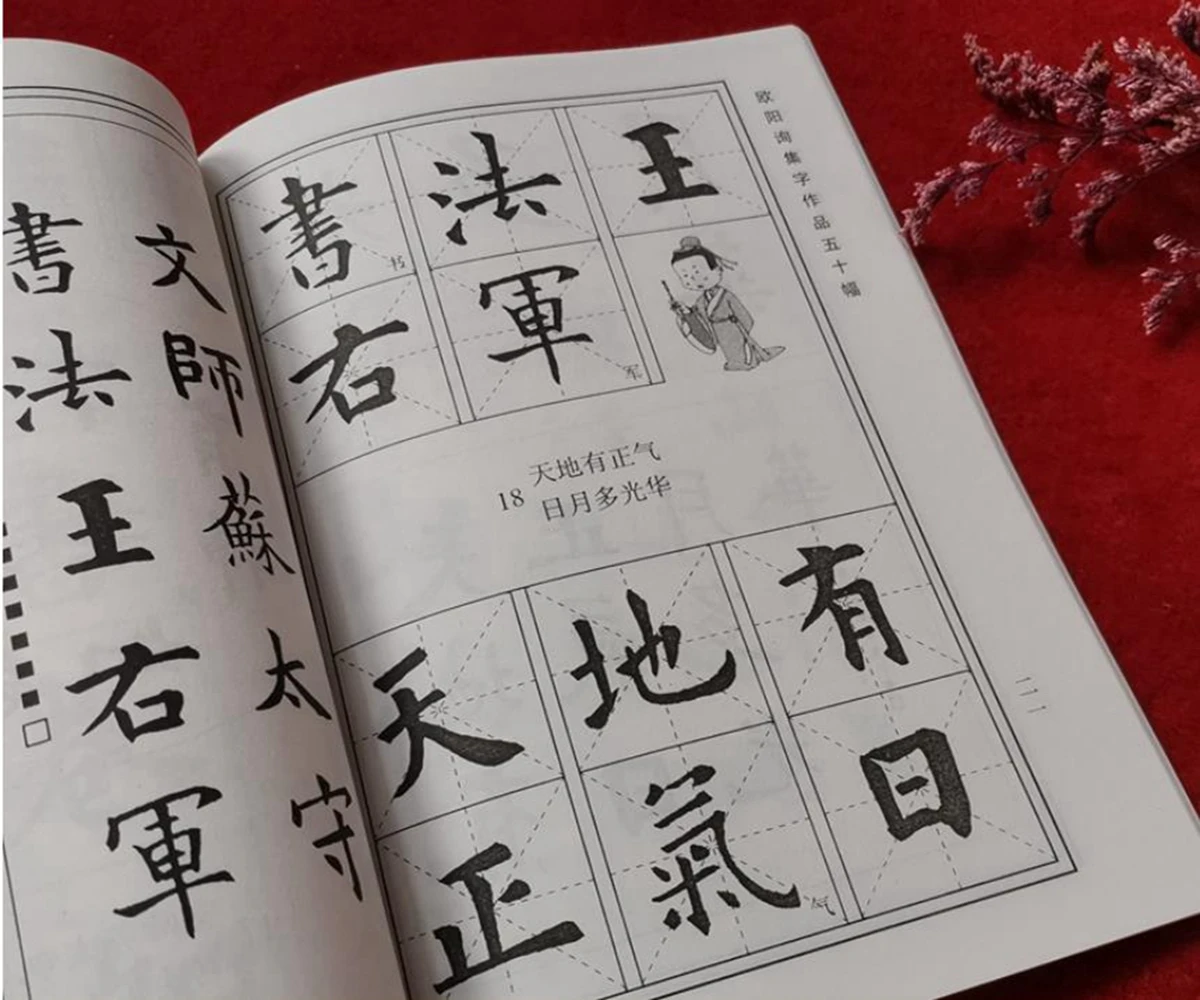 文師蘇太守
書法王右軍
欧阳询集字作品五十幅
書法王
书
右軍
军
18
天地有正气
日月多光华
天地有
正氣日
气
二一